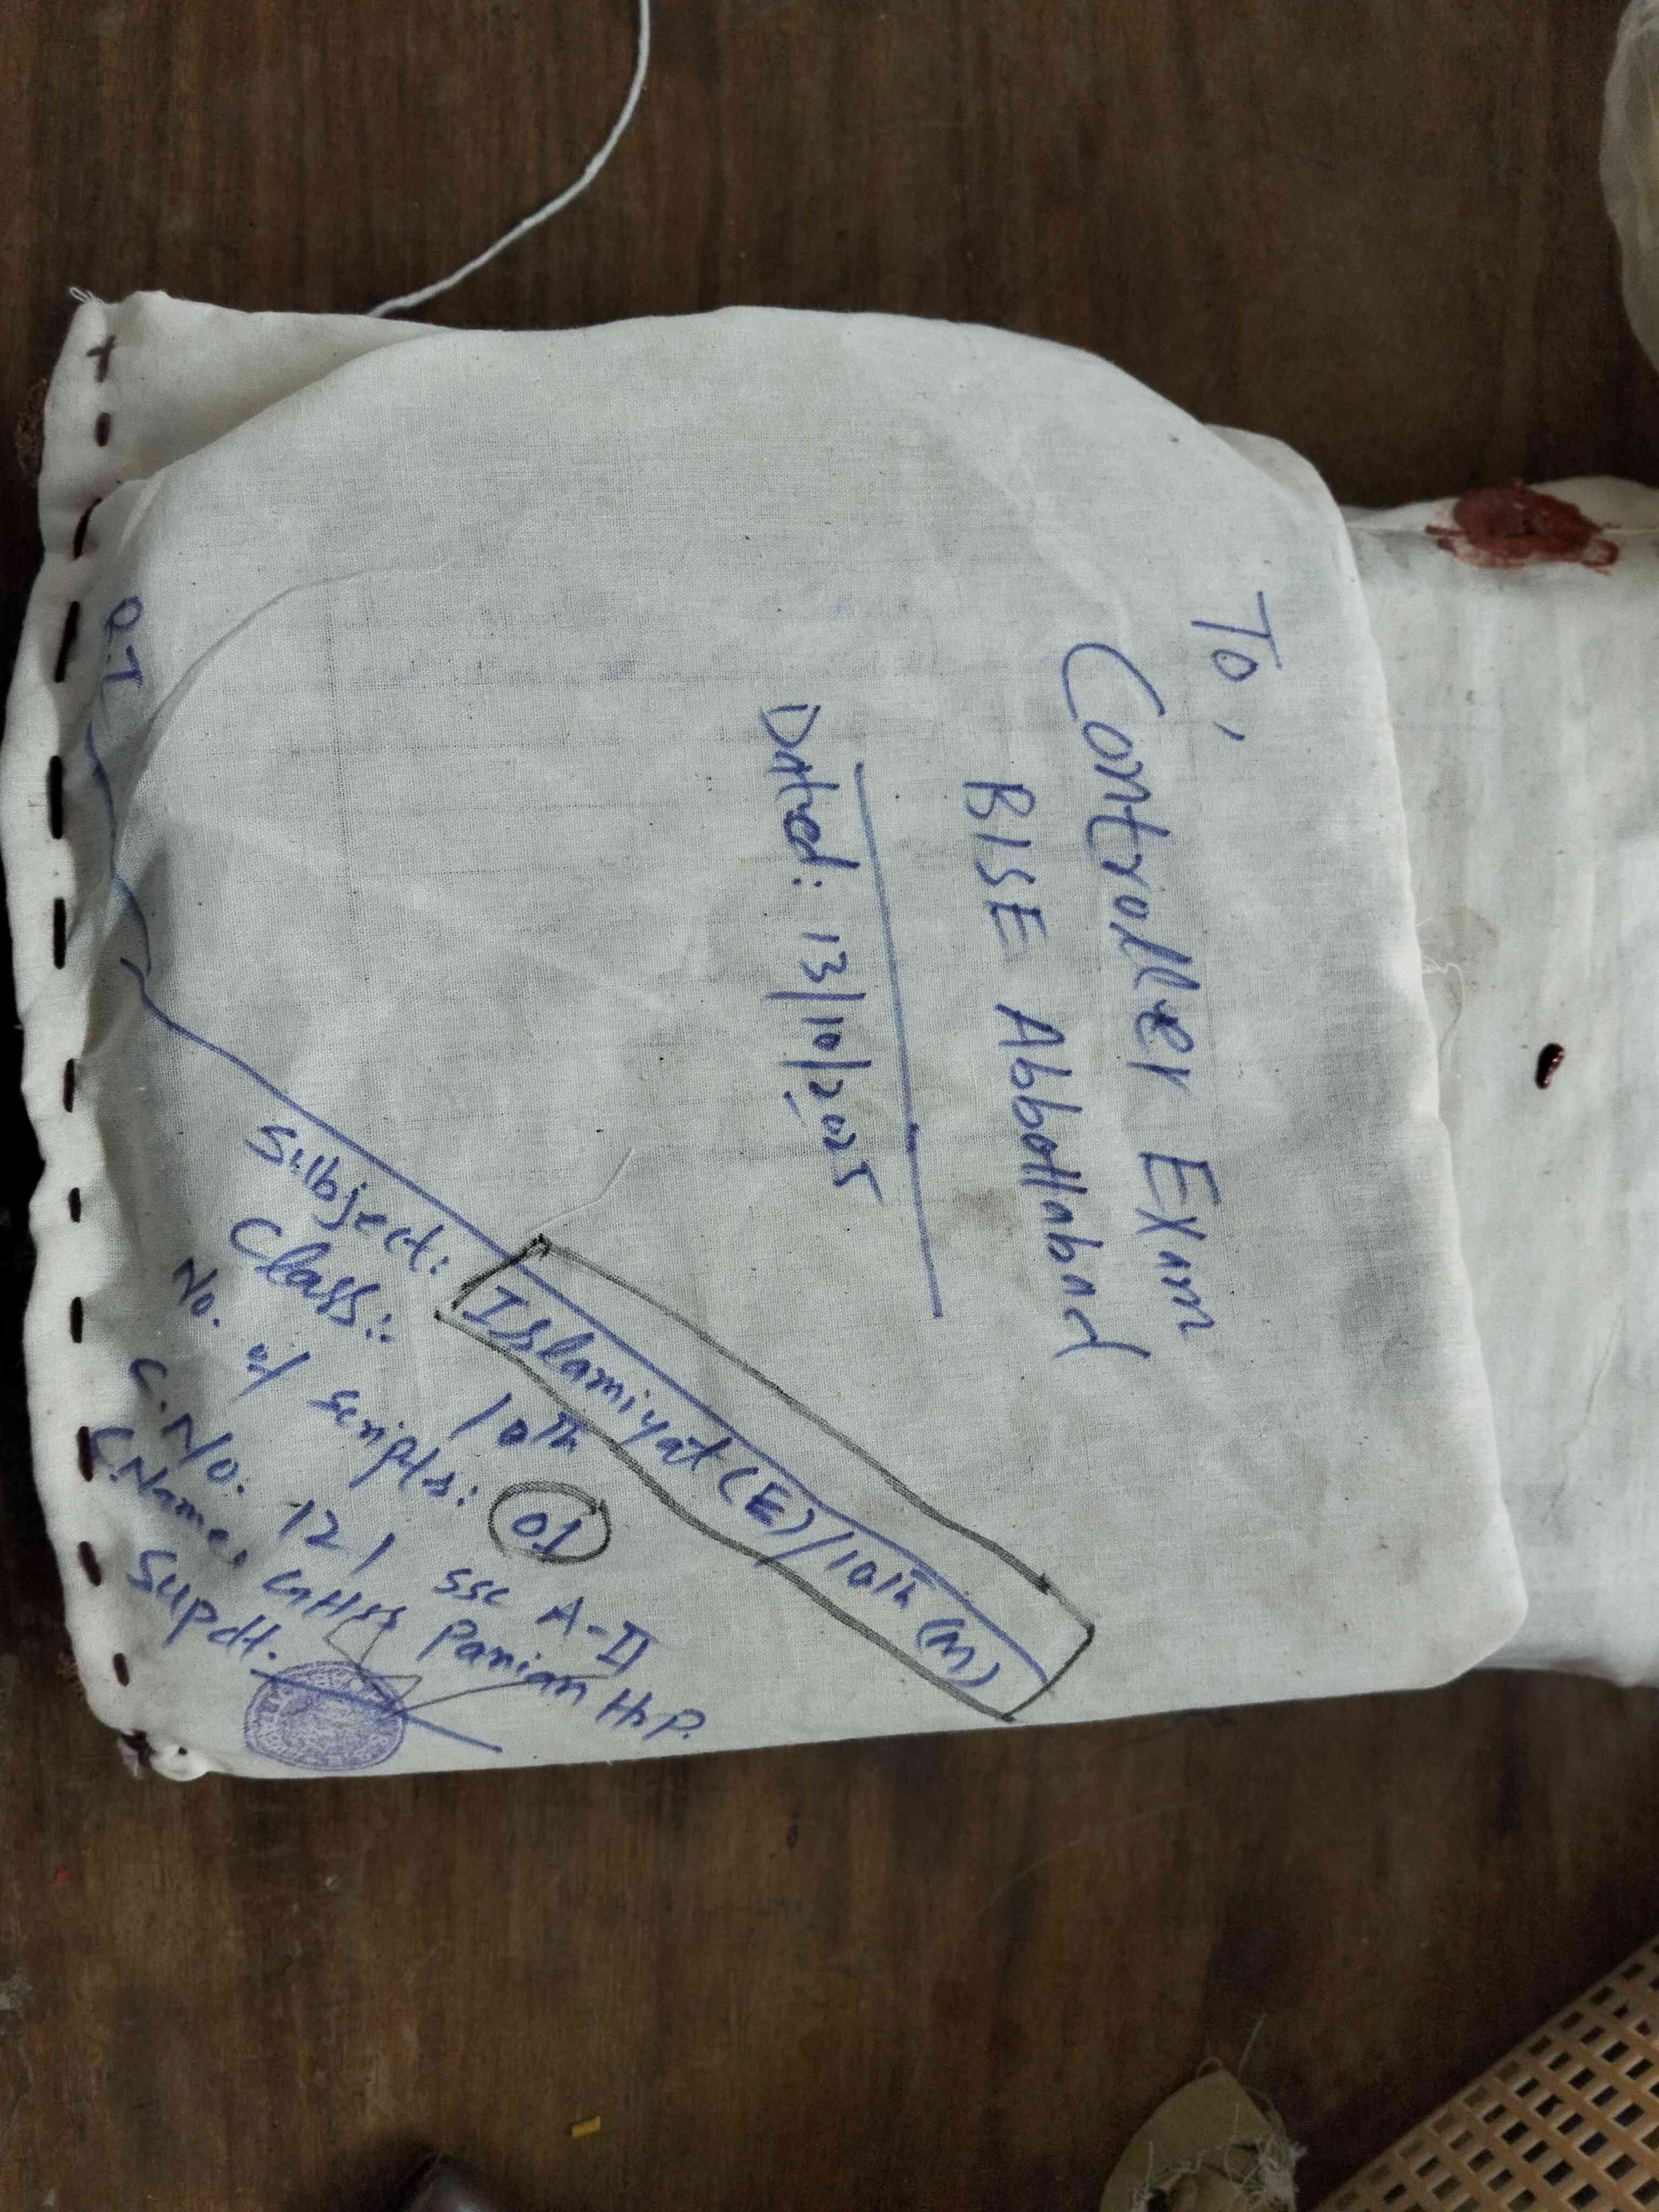 To,
Controller Exam
BISE Abbottabad
Dated: 13/10/2025
O.T
Subject: Islamiyat (E)/10th (M)
Class:: 10th
No. of scripts: 01
C.No. 121 SSC A-II
C.Name: GHSS Panian HrP.
Supdt.